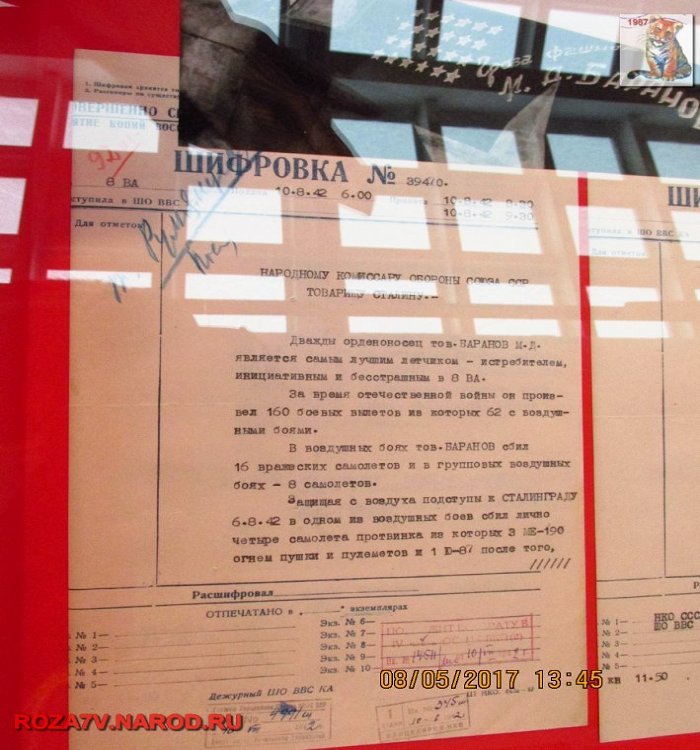 1987
М. Д. БАРАНОВ
1. Шифровки хранятся
СОВЕРШЕННО
СНЯТИЕ КОПИЙ ВОС
ШИФРОВКА № 394/0.
8 ВА
Подача 10.8.42 6.00
10.8.42 8.30
10.8.42 9.30
оступила в ШО ВВС
Для отметок
НАРОДНОМУ КОМИССАРУ ОБОРОНЫ СОЮЗА ССР
ТОВАРИЩУ СТАЛИНУ.-
Дважды орденоносец тов.БАРАНОВ М.Д.
является самым лучшим летчиком - истребителем,
инициативным и бесстрашным в 8 ВА.
За время отечественной войны он произ-
вел 160 боевых вылетов из которых 62 с воздуш-
ными боями.
В воздушных боях тов.БАРАНОВ сбил
16 вражеских самолетов и в групповых воздушных
боях - 8 самолетов.
Защищая с воздуха подступы к СТАЛИНГРАДУ
6.8.42 в одном из воздушных боев сбил лично
четыре самолета протвинка из которых 3 МЕ-190
огнем пушки и пулеметов и 1 Ю-87 после того,
//////
Расшифровал
ОТПЕЧАТАНО в " экземплярах
№ 1—
№ 2—
№ 3—
№ 4—
№ 5—
Экз. № 6—
Экз. № 7—
Экз. № 8—
Экз. № 9—
Экз. № 10—
Дежурный ШО ВВС КА
ШИ
оступила в ШО ВВС КА
Для отметок
Р
НКО ССС
ШО ВВС
№ 1—
№ 2—
№ 3—
№ 4—
№ 5—
кн 11.50
08/05/2017 13:45
ROZA7V.NAROD.RU